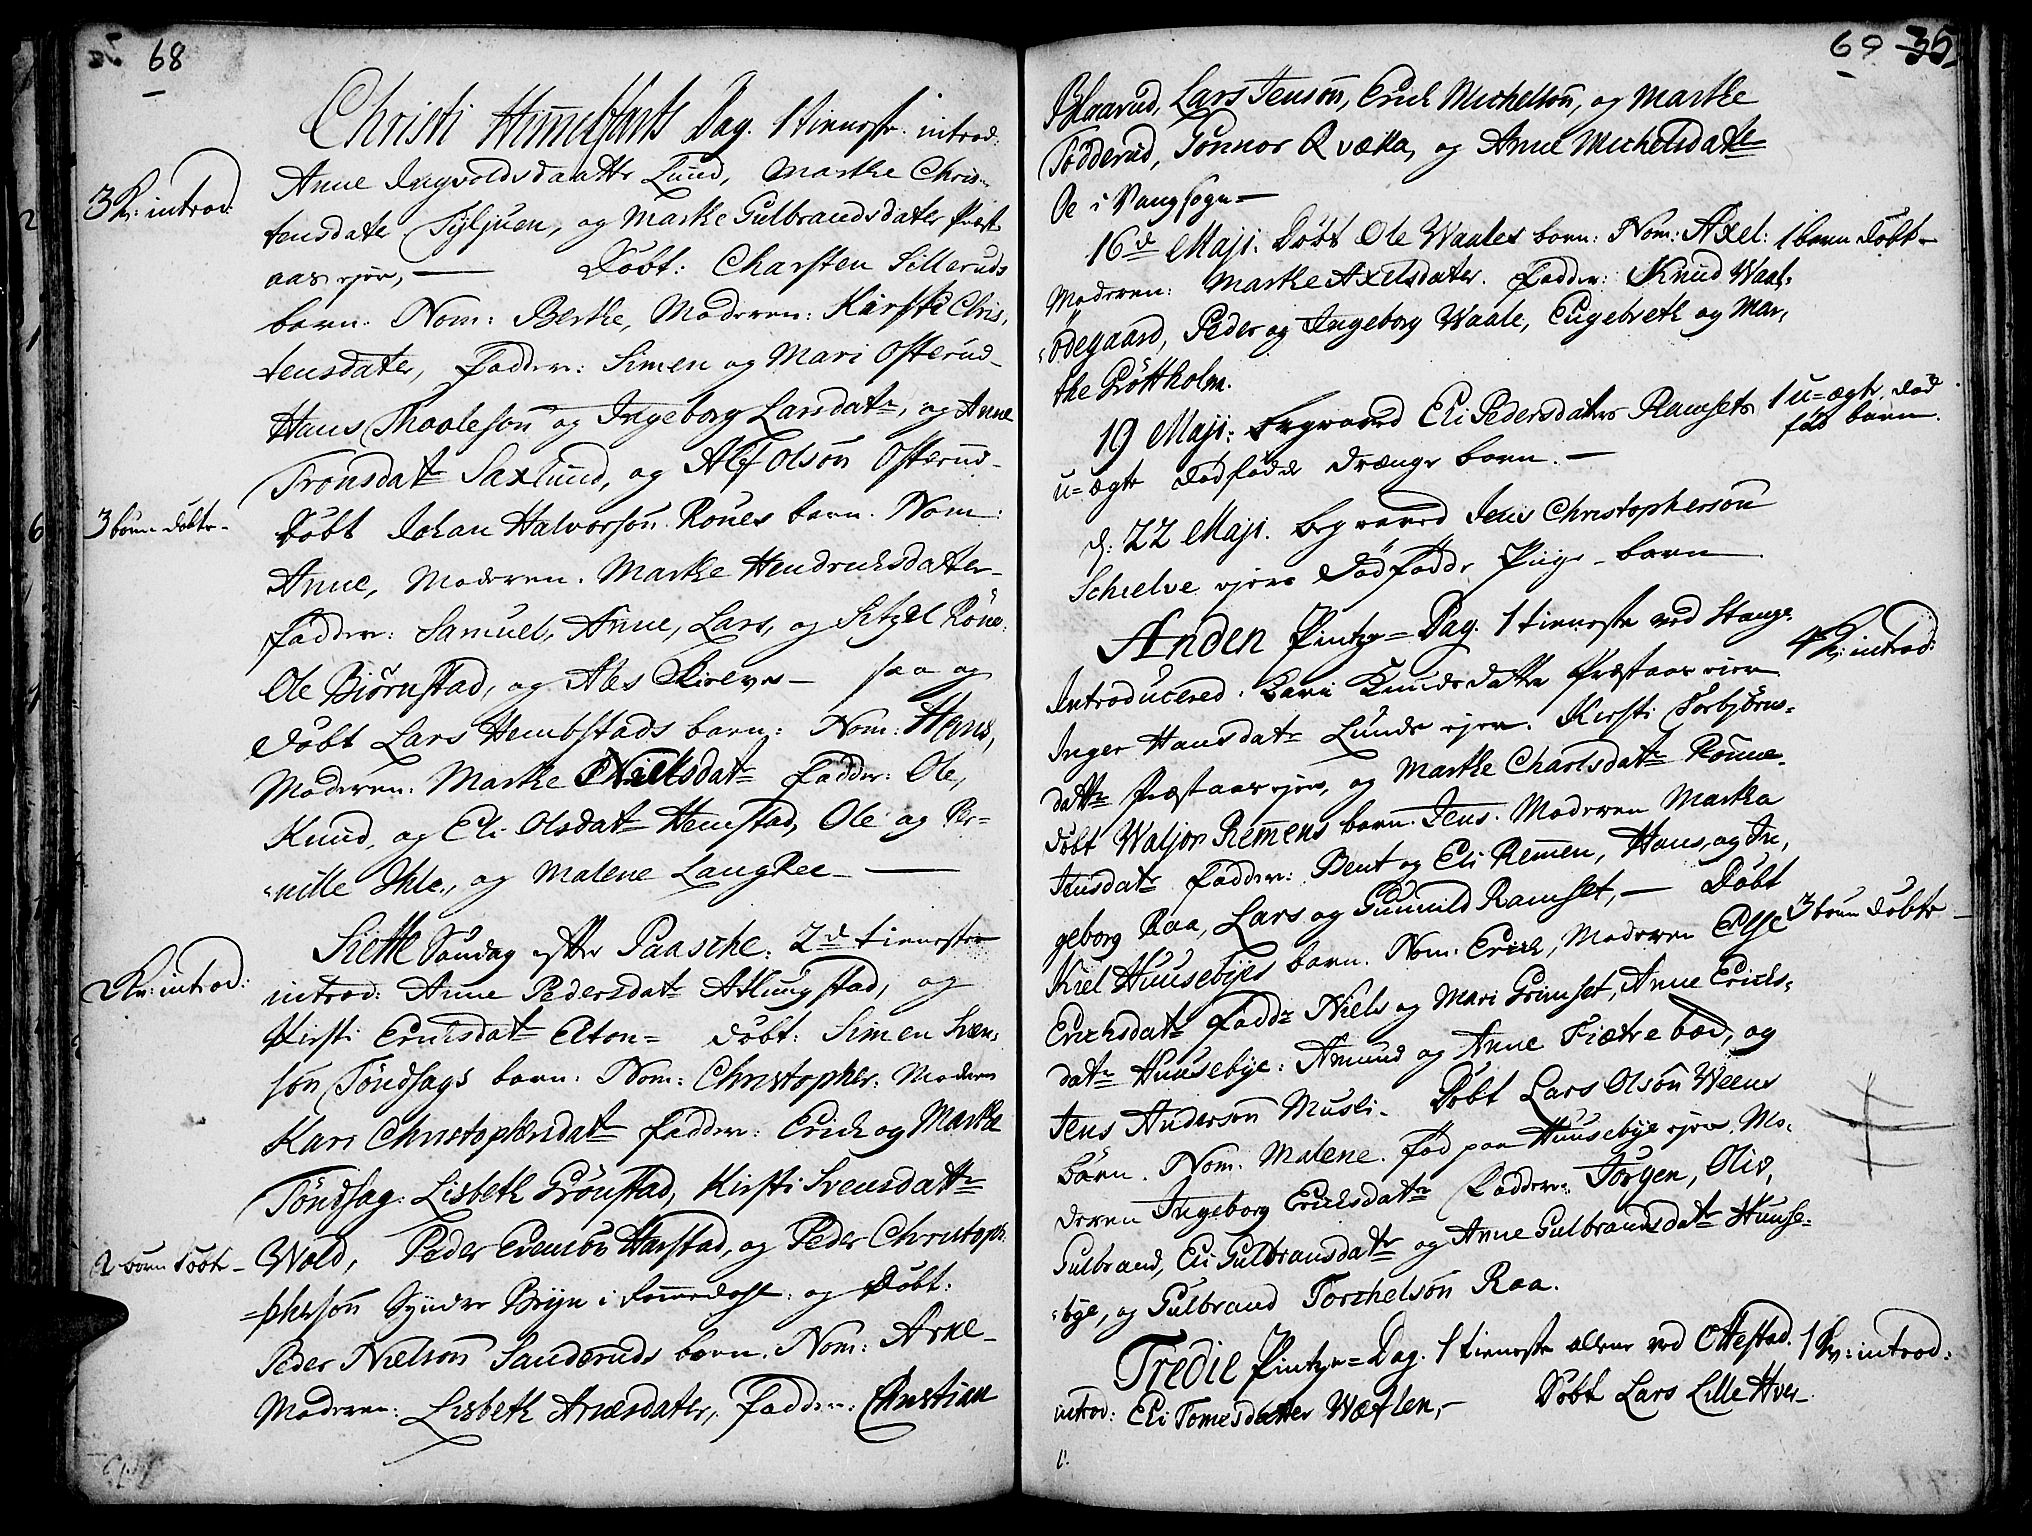 68
Christi Himmelfarts Dag. 1 tieneste. introd:
3 K: introd:
Anne Ingvoldsdaatter Lund, Marthe Chris-
tensdater Tyljuen, og Marthe Gulbrandsdater Præst-
aas ejer, — Döbt: Charsten Silleruds
barn. Nom: Berthe, Moderen: Kirsti Chris,
tensdater, Fadder: Simen og Mari Osterud-
Hans Thoolesön og Ingeborg Larsdatr, og Anne
Tronsdatr Saxlund, og Alf Olsön Osterud-
3 börn döbte-
Döbt Johan Halvorsön Rönes barn. Nom:
Anne, Moderen. Marthe Hendrichsdatter-
Fadder: Samuel, Anne, Lars, og Sitzel Röne,
Ole Biörnstad, og Ales Skielves— saa og
Döbt Lars Hembstads barn: Nom: Hans,
Moderen: Marthe Nielsdatr Fadder: Ole,
Knud, og Eli Olsdatr Hemstad, Ole og Per-
nille Ihle, og Malene Langhee— —
Siette Söndag efter Paasche: 2d tieneste
2 Kv: introd:
introd: Anne Pedersdatr Atlungstad, og
Kirsti Erichsdatr Elton= döbt: Simen Sven,
sön Töndsags barn: Nom: Christopher: Moderen
Kari Christophersdatr Fadder: Erich og Marthe
Töndsag: Lisbeth Grönstad, Kirsti Svensdatr
2 börn döbte-
Wold, Peder Evensön Harstad, og Peder Christoph-
phersön Syndre Bryn i Romedahl: og Döbt:
Peder Nielsön Sanderuds barn. Nom: Arne-
Moderen: Lisbeth Arnesdater, Fadder: Christian
69 35
Blaarud, Lars Jensön, Erich Michelsön, og Marthe
Todderud, Gunnor Qvæka, og Anne Michelsdatr
Oe i Vang sogn—
16d Maji: Döbt Ole Waales barn: Nom: Axel: 1 barn döbt-
Moderen: Marthe Axelsdater. Fadder: Knud Waal-
ödegaard, Peder og Ingeborg Waale, Engebreth og Mar,
the Gröttholm.
19 Maji: begraved Eli Pedersdaters Ramsets 1 u=ægte död
u=ægte dödfödde drænge barn.— föd barn.
d: 22 Maji. begraved Jens Christophersön
Schielve ejers dödfödde Piige-barn
Anden Pintze=Dag. 1 tieneste ved Stange.
4 K: introd:
Introducered: Kari Knudsdatter Præstaas eier
Inger Hansdatr Lunds ejer. Kirsti Torbjörns-
datr Præstaas ejer, og Marthe Charlsdatr Rönne.
döbt Waljor Remmens barn. Jens. Moderen Martha
Jensdatr Fadder: Bent og Eli Remmen, Hans, og In,
geborg Raa, Lars og Gunnild Ramset,— Döbt
3 börn döbte-
Kiel Huusebyes barn. Nom: Erich, Moderen Elje
Erichsdatr Faddr Niels og Mari Grimset, Anne Erichs-
datr Huusebye: Amund og Anne Fiætrebæd, og
Jens Andersön Musli. Döbt Lars Olsön Weens
barn. Nom. Malene. Föd paa Huusebye ejer. Mo-
deren Ingeborg Erichsdatr Fadder: Jörgen, Oliv,
Gulbrand, Eli Gulbransdatr og Anne Gulbransdatr Huuse-
bye, og Gulbrand Torchelsön Raa.
Tredie Pintze=Dag. 1 tieneste allene ved Ottestad. 1 Kv: introd:
introd: Eli Tomesdatter Wæflen,— Döbt Lars Lille Hver-